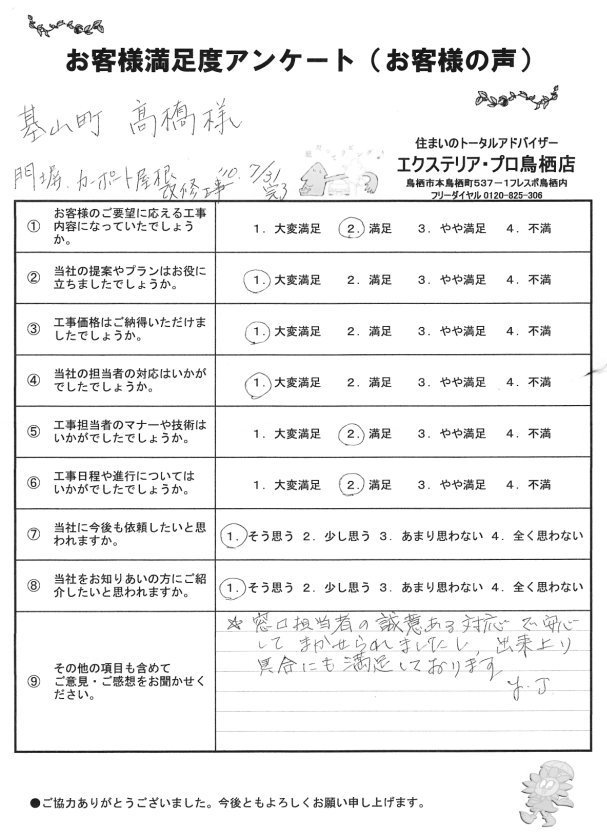 お客様満足度アンケート（お客様の声）
基山町 髙橋様
住まいのトータルアドバイザー
エクステリア・プロ鳥栖店
鳥栖市本鳥栖町537－1フレスポ鳥栖内
フリーダイヤル 0120-825-306
門塀、カーポート屋根 改修工事 '10. 7/31 完了
① お客様のご要望に応える工事内容になっていたでしょうか。 1. 大変満足 2. 満足 3. やや満足 4. 不満
② 当社の提案やプランはお役に立ちましたでしょうか。 1. 大変満足 2. 満足 3. やや満足 4. 不満
③ 工事価格はご納得いただけましたでしょうか。 1. 大変満足 2. 満足 3. やや満足 4. 不満
④ 当社の担当者の対応はいかがでしたでしょうか。 1. 大変満足 2. 満足 3. やや満足 4. 不満
⑤ 工事担当者のマナーや技術はいかがでしたでしょうか。 1. 大変満足 2. 満足 3. やや満足 4. 不満
⑥ 工事日程や進行についてはいかがでしたでしょうか。 1. 大変満足 2. 満足 3. やや満足 4. 不満
⑦ 当社に今後も依頼したいと思われますか。 1. そう思う 2. 少し思う 3. あまり思わない 4. 全く思わない
⑧ 当社をお知りあいの方にご紹介したいと思われますか。 1. そう思う 2. 少し思う 3. あまり思わない 4. 全く思わない
⑨ その他の項目も含めてご意見・ご感想をお聞かせください。
☆ 窓口担当者の誠意ある対応で安心
してまかせられましたし、出来上り
具合にも満足しております
y. J
●ご協力ありがとうございました。今後ともよろしくお願い申し上げます。